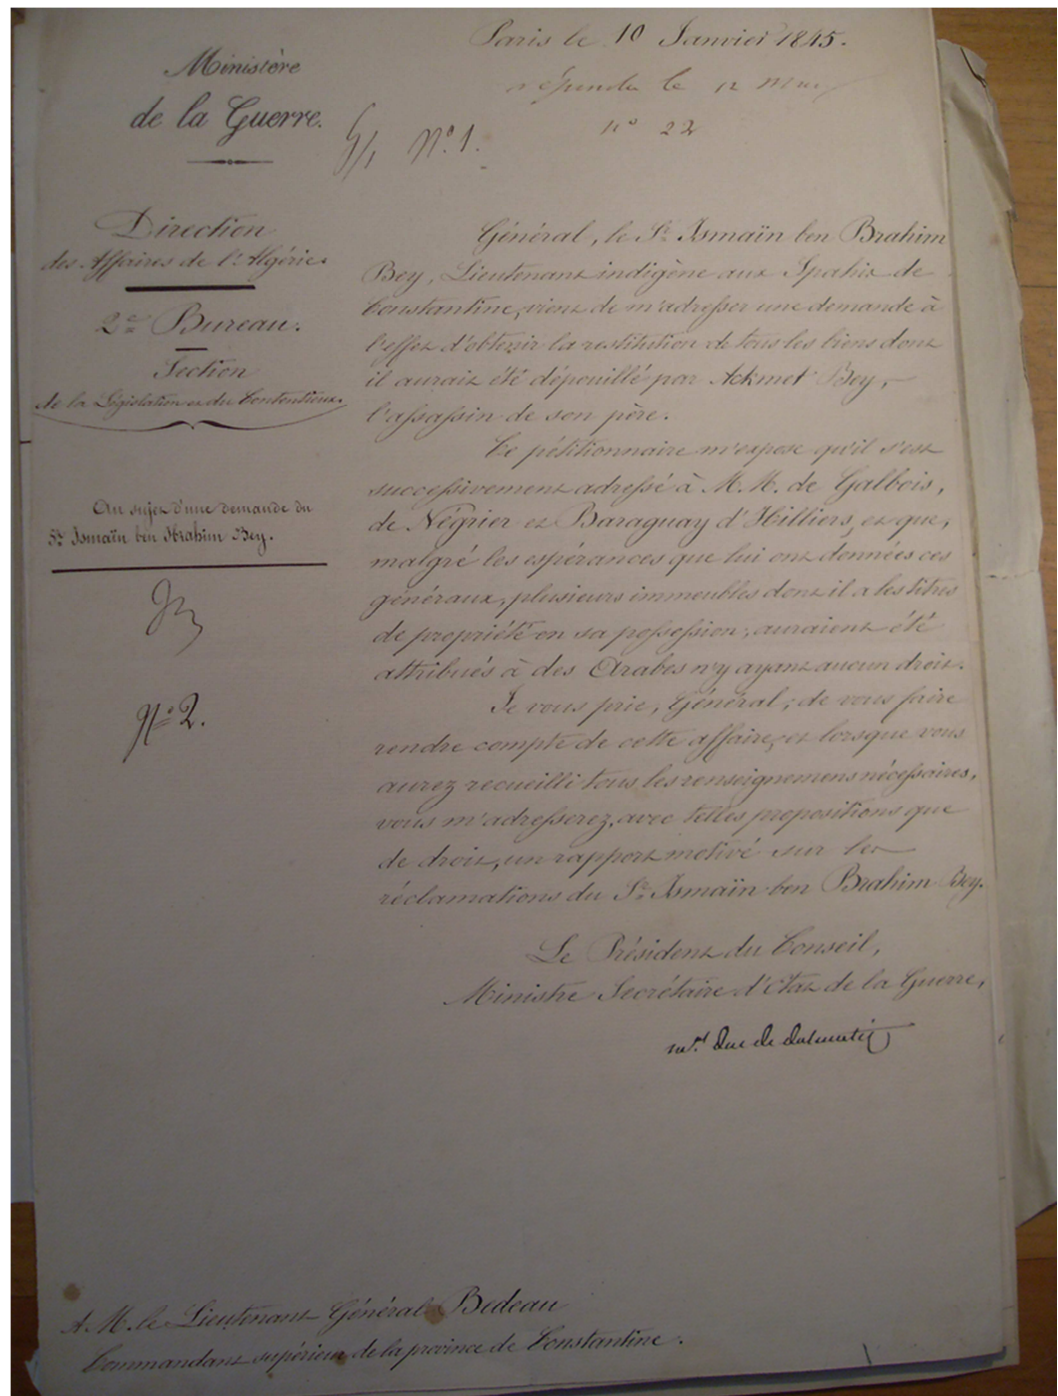 Paris le 10 Janvier 1845.
Ministère
de la Guerre.
le 12
n° 22
N° 1.
Direction
des Affaires de l'Algérie.
2e Bureau.
Section
de la Législation et du Contentieux.
Au sujet d'une demande du
Sr. Ismaïn ben Ibrahim Bey.
N° 2.
Général, le Sr. Ismaïn ben Brahim
Bey, Lieutenant indigène aux Spahis de
Constantine, vient de m'adresser une demande à
l'effet d'obtenir la restitution de tous les biens dont
il aurait été dépouillé par Ackmet Bey,
l'assassin de son père.
Ce pétitionnaire m'expose qu'il s'est
successivement adressé à M.M. de Galbois,
de Négrier et Baraguay d'Hilliers, et que,
malgré les espérances que lui ont données ces
généraux, plusieurs immeubles dont il a les titres
de propriété en sa possession, auraient été
attribués à des Arabes n'y ayant aucun droit.
Je vous prie, Général, de vous faire
rendre compte de cette affaire, et lorsque vous
aurez recueilli tous les renseignemens nécessaires,
vous m'adresserez, avec telles propositions que
de droit, un rapport motivé sur les
réclamations du Sr. Ismaïn ben Brahim Bey.
Le Président du Conseil,
Ministre Secrétaire d'Etat de la Guerre,
Mal duc de dalmatie
A M. le Lieutenant Général Bedeau
Commandant supérieur de la province de Constantine.